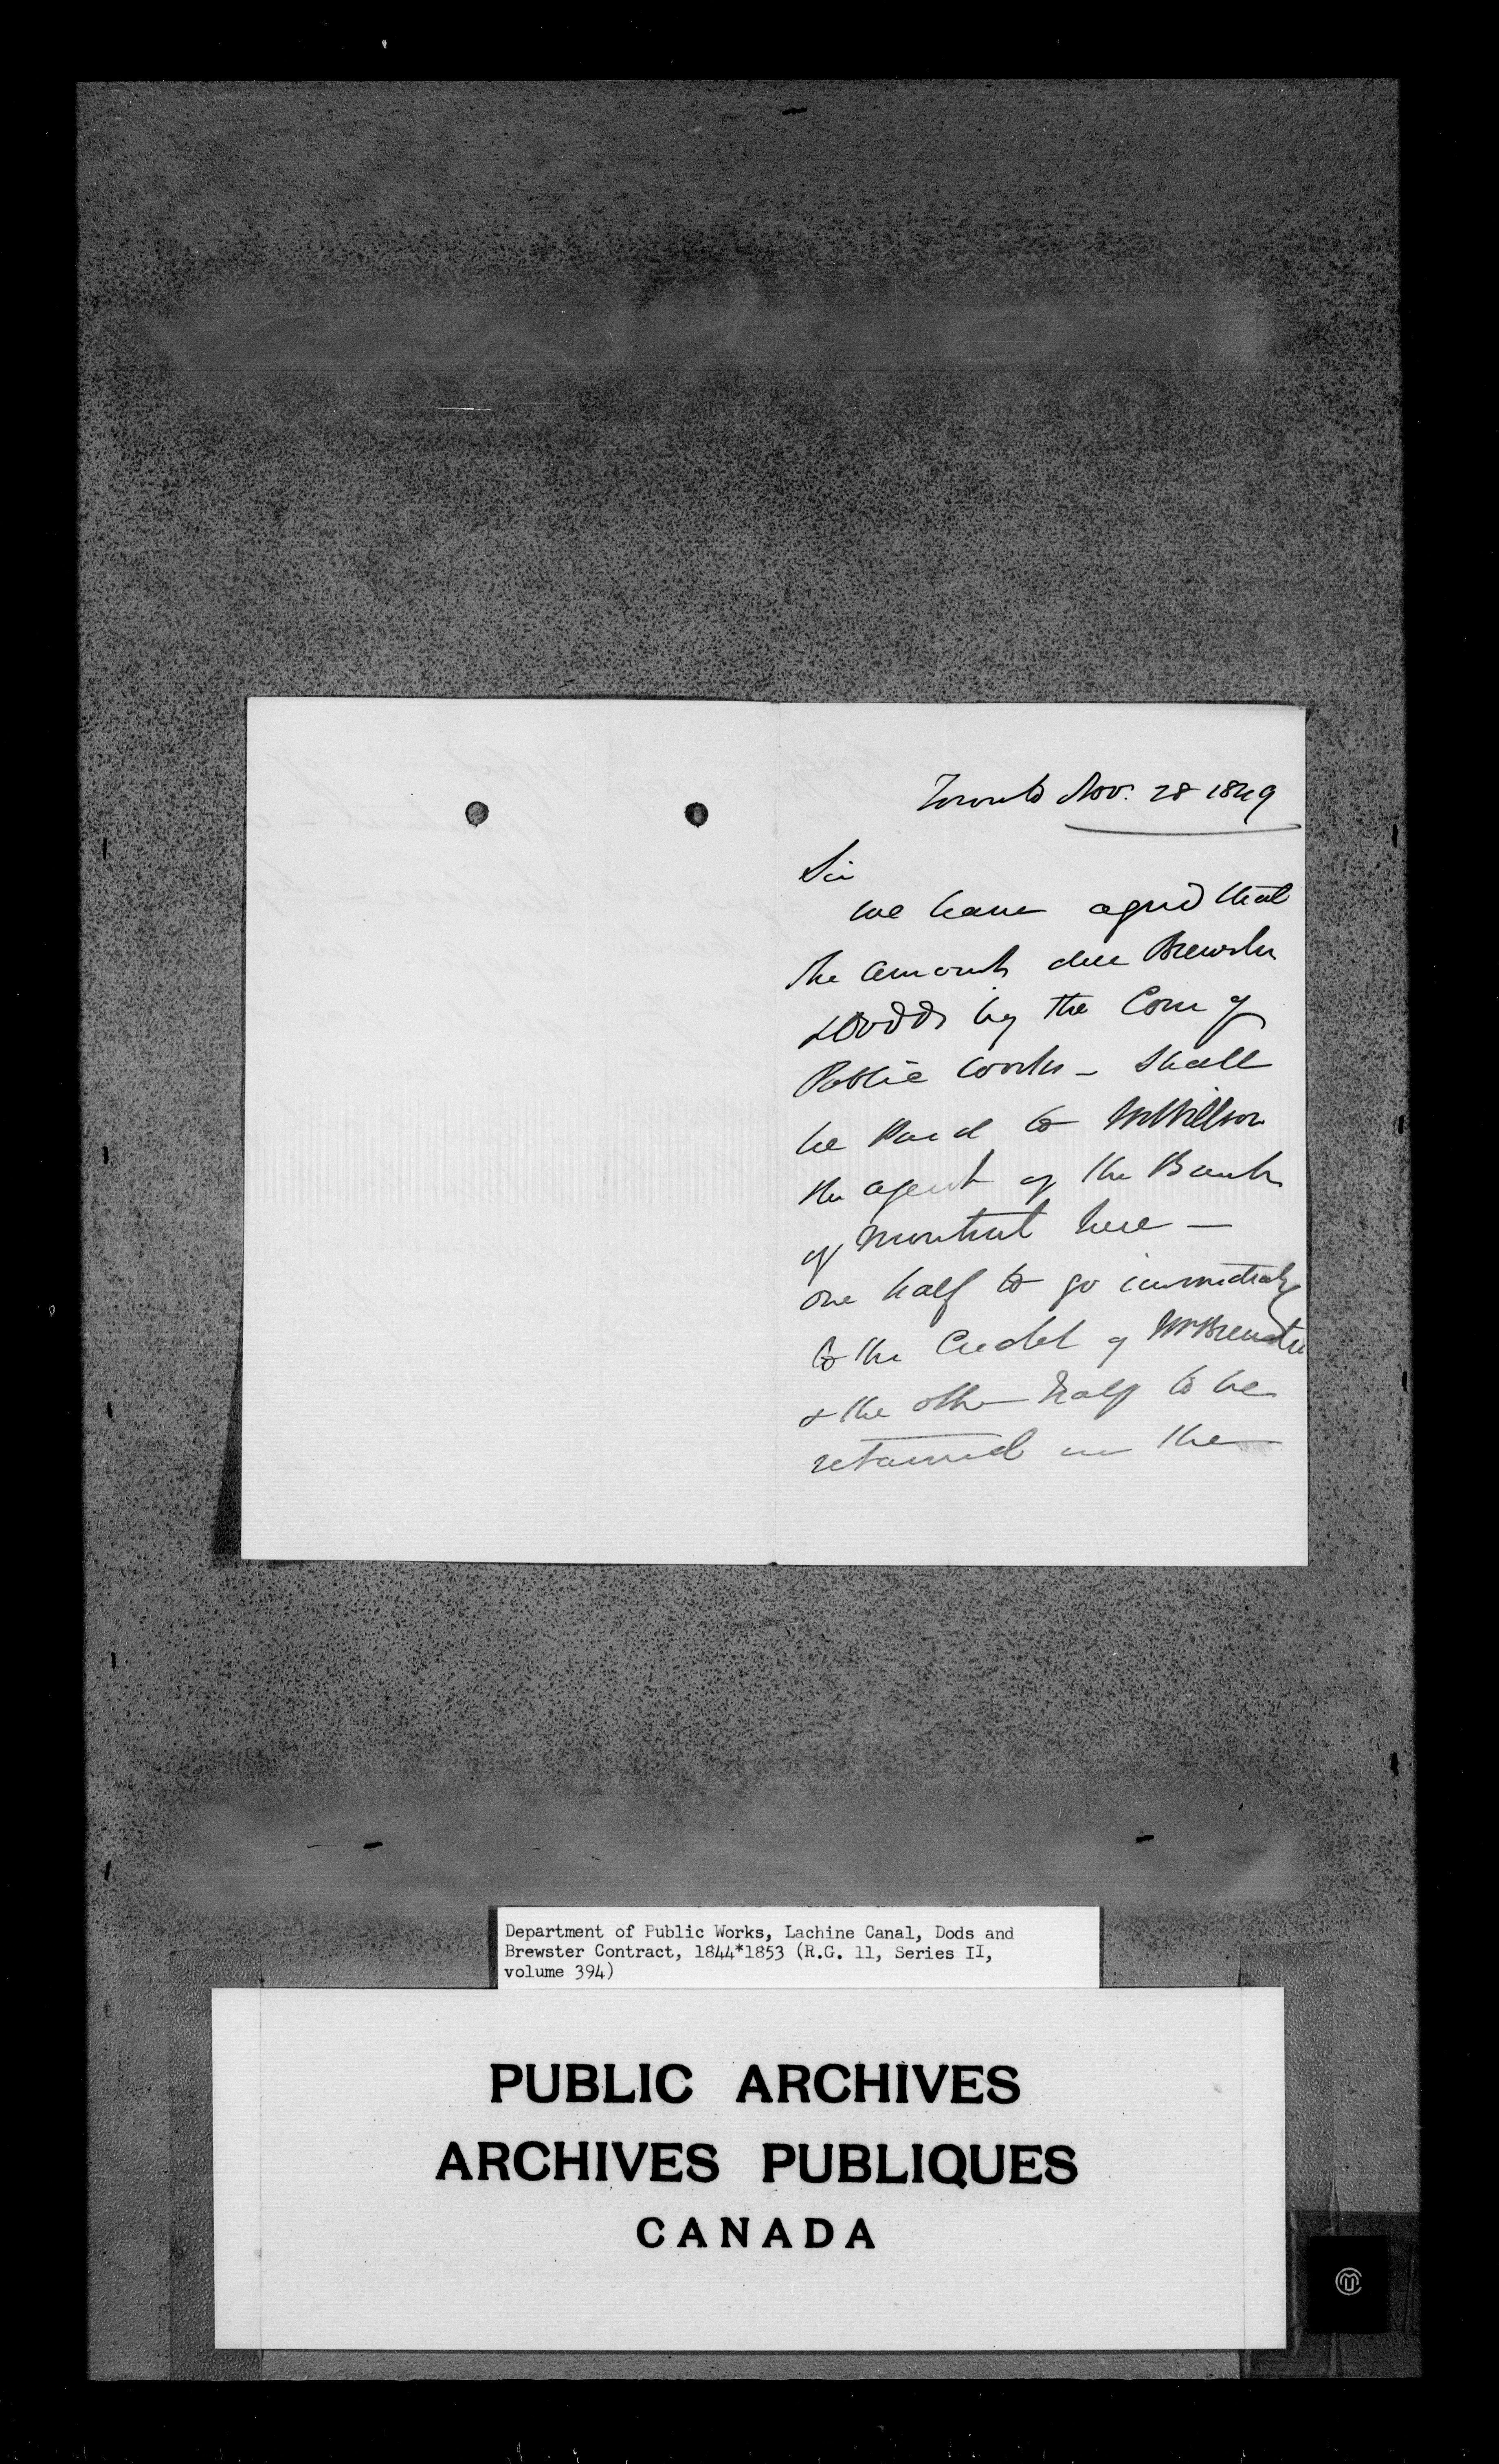 Toronto Nov. 28 1849
Sir
We have agreed that
the amount due Brewster
& Dodds by the Com of
Public Works - shall
be Paid to Mr Willson
the agent of the Bank
of Montreal here -
one half to go immediately
to the Credit of Mr Brewster
& the other half to be
retained in the
Department of Public Works, Lachine Canal, Dods and
Brewster Contract, 1844*1853 (R.G. 11, Series II,
volume 394)
PUBLIC ARCHIVES
ARCHIVES PUBLIQUES
CANADA